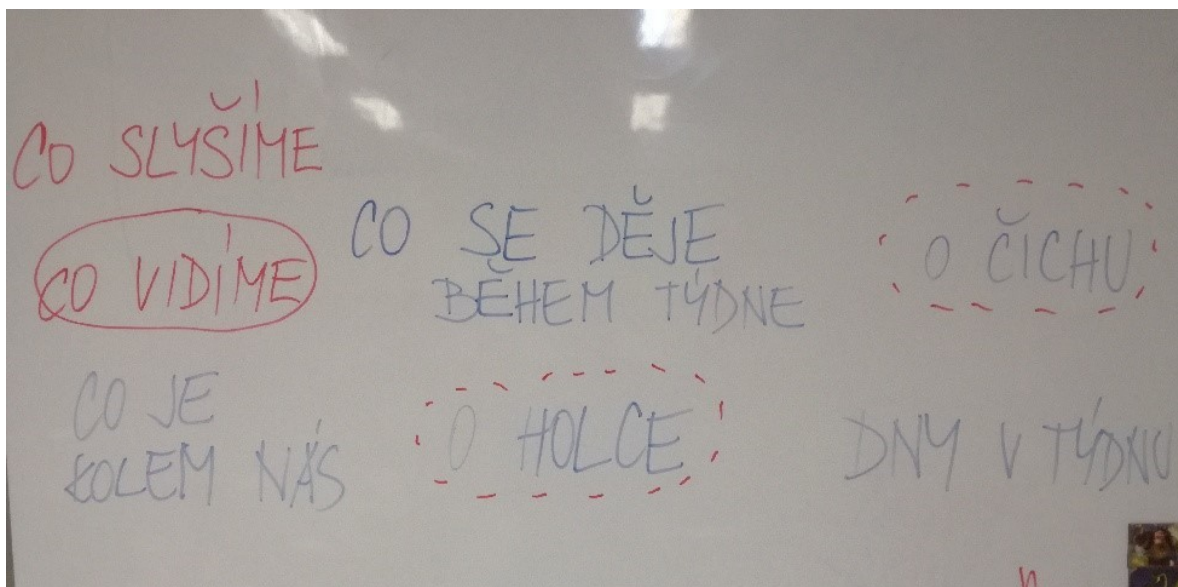 CO SLYŠÍME
CO VIDÍME
CO SE DĚJE
BĚHEM TÝDNE
O ČICHU
CO JE
KOLEM NÁS
O HOLCE
DNY V TÝDNU